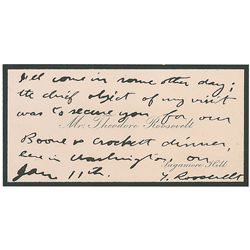 I'll come in some other day;
the chief object of my visit
was to secure you for our
Mr. Theodore Roosevelt
Boone & Crockett dinner,
here in Washington, on
Sagamore Hill
Jan 11th.
T. Roosevelt